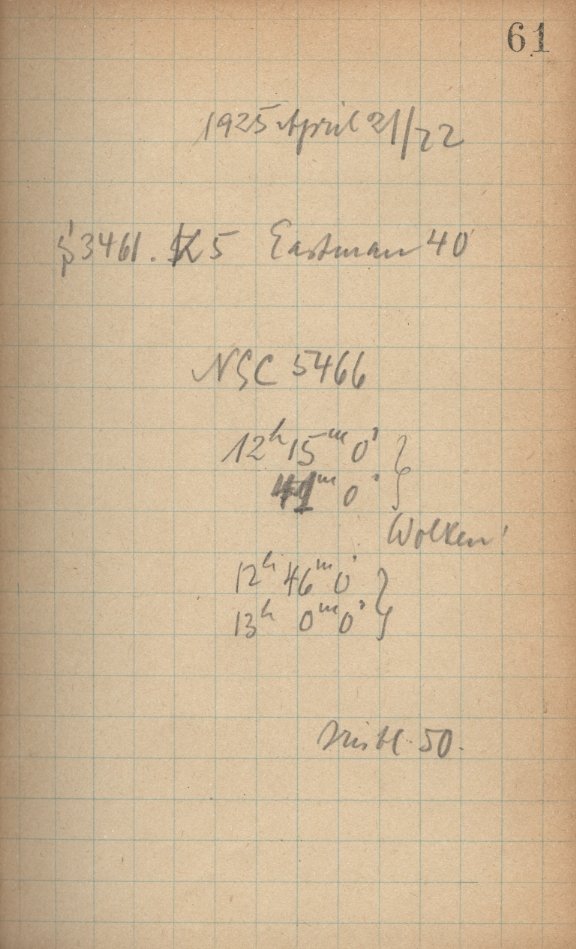 61
1925 April 21/22
3461. K5 Eastman 40
NGC 5466
12h 15m 0s
41m 0s
Wolken!
12h 46m 0s
13h 0m 0s
50.